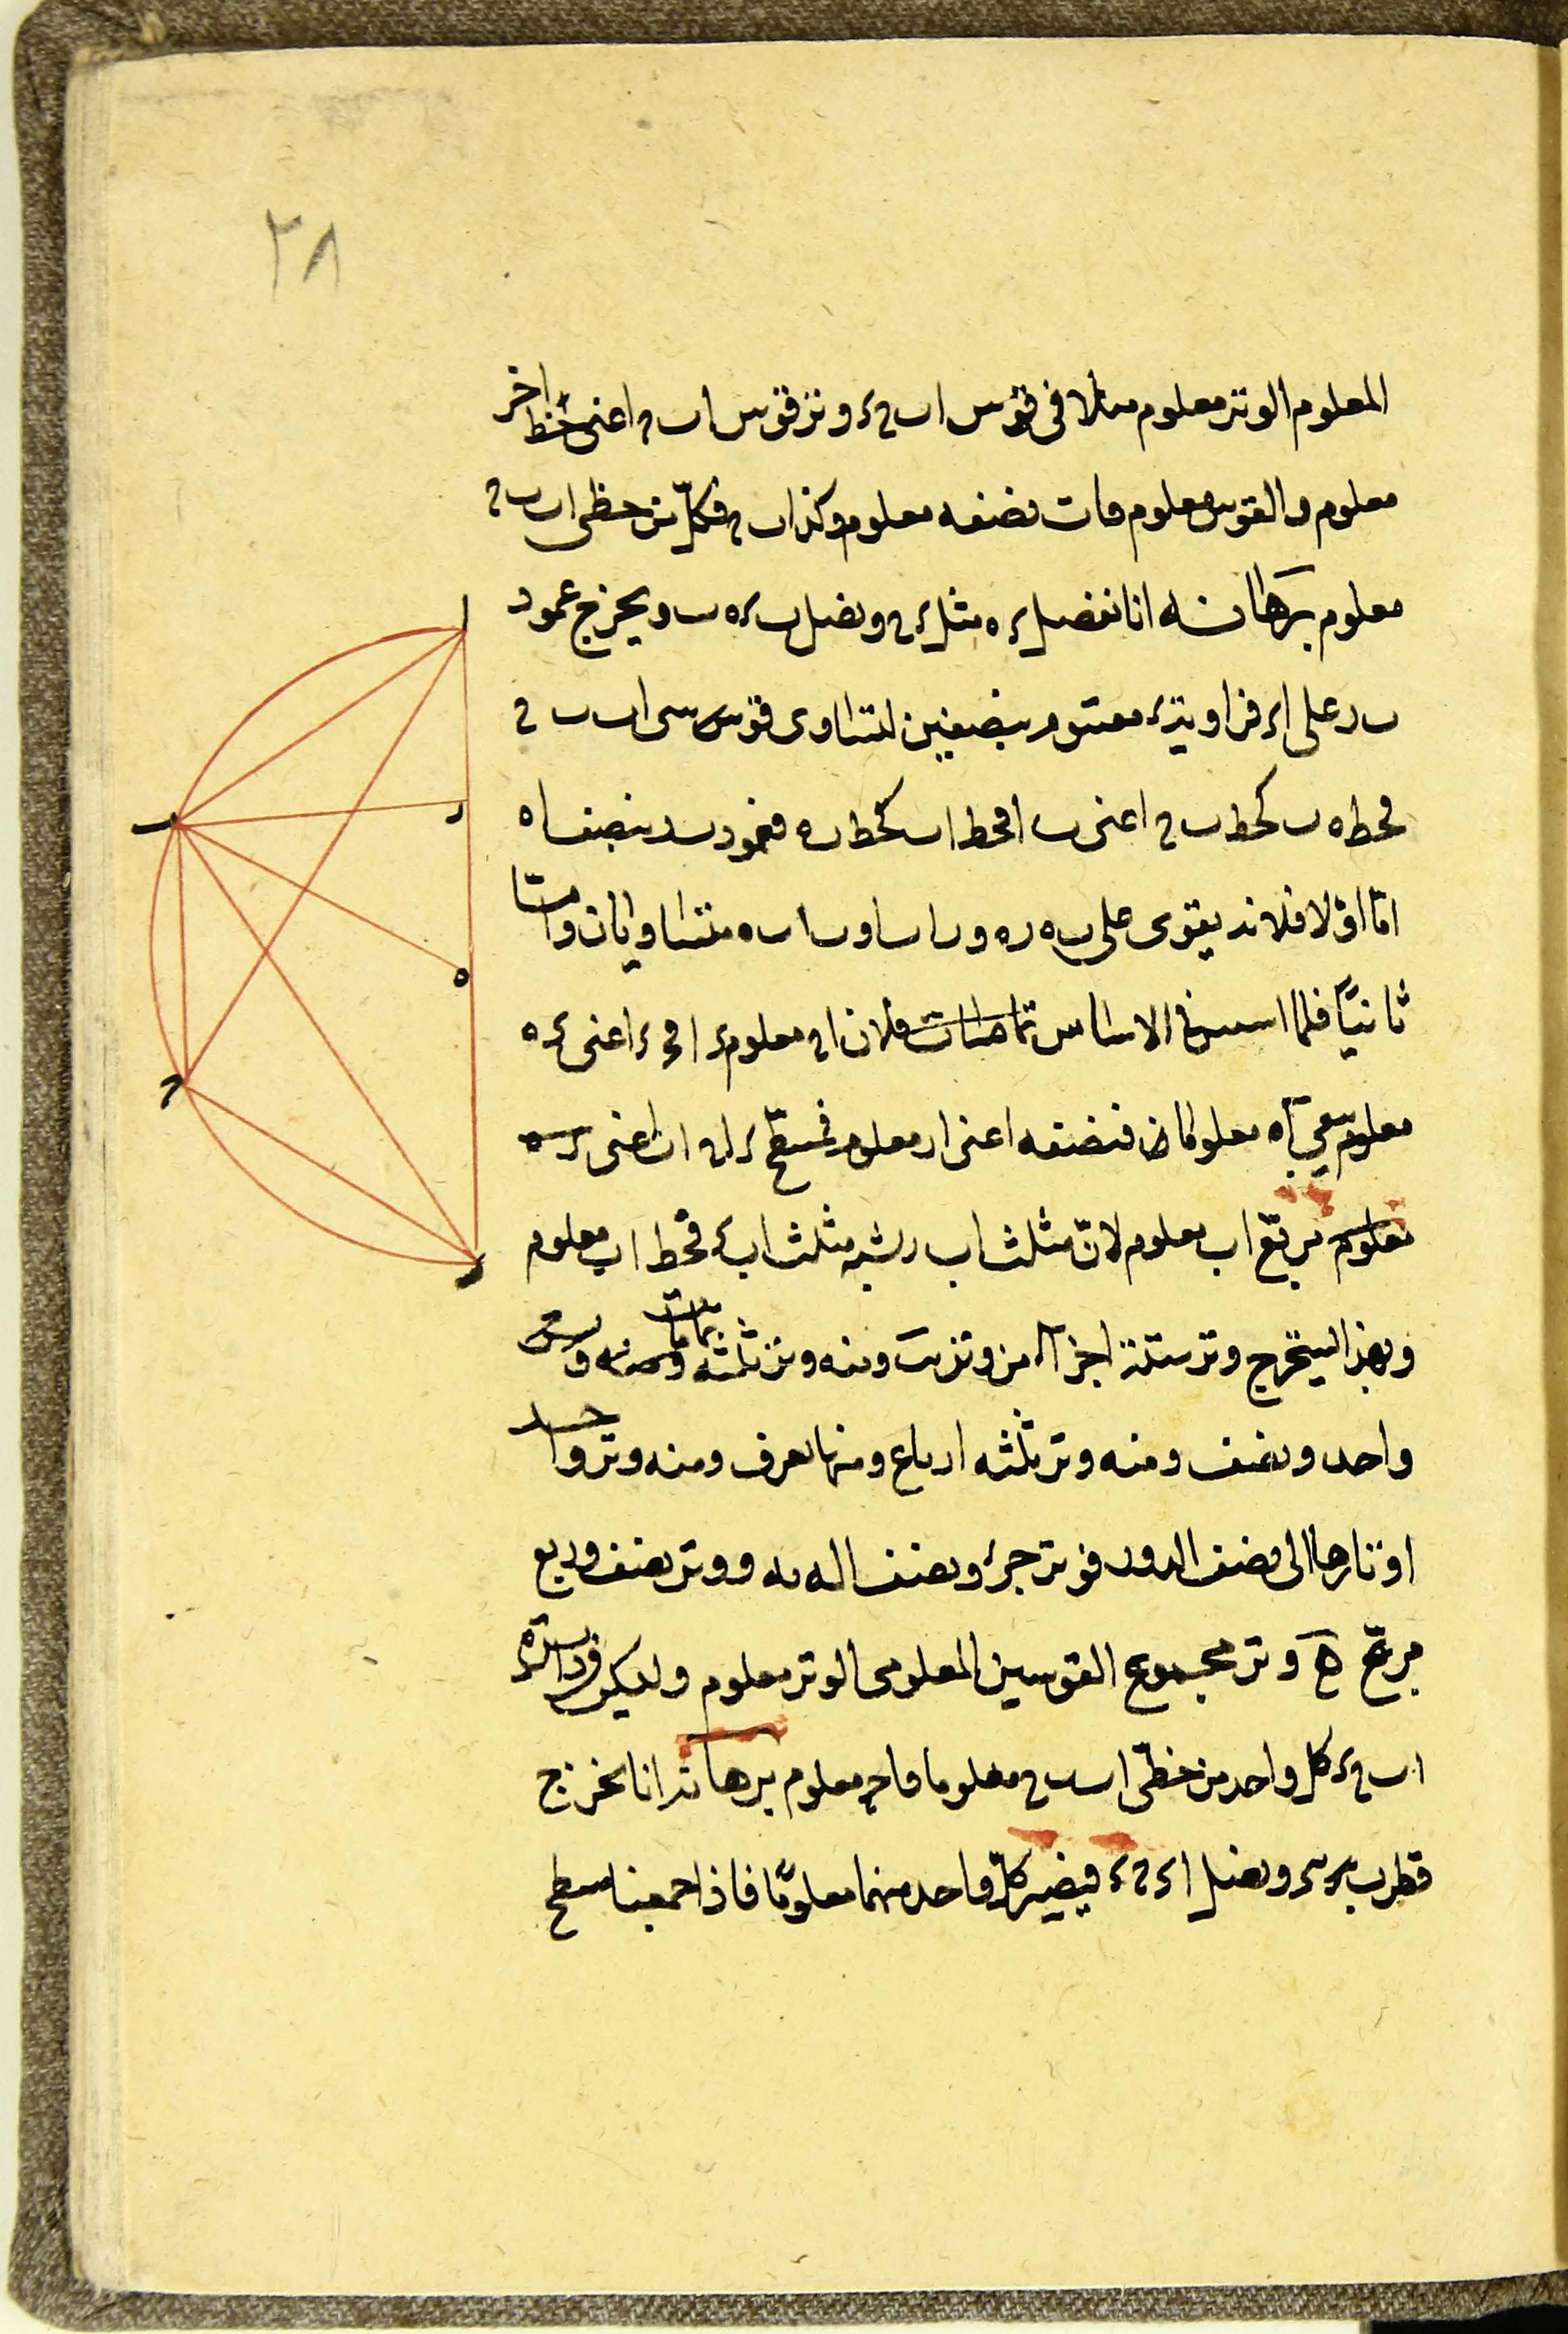 ٢٨
المعلوم الوتر معلوم مثلا في قوس اب حء وتر قوس اب ح اعني خط اخر
معلوم والقوس معلوم فات نصفه معلوم وكذا ب ح فكل من خطي اب ب ح
معلوم برهانه انا نفصل ء ه مثل ء ح ونصل ب ء ه ب ويخرج عمود
ب ر على اء فزاوية ء مقسوم بنصفين لتساوى قوسى اب ب ح
فخط ه ب كخط ب ح اعنى ب ا فخط اب كخط ب ه فعمود ب ر ينصف اه
اما اولا فلانه يقوى على ب ه ر ه و ب ا ر ا و ب ا ب ه متساويان واما
ثانيًا فلما في الاساس فلان اح معلوم ء ا ح ء اعنى ء ه
معلوم بقي اه معلوما فنصفه اعنى ار معلوم فسطح
معلوم مربع اب معلوم لانّ مثلث اب ر شبه مثلث اب ء فخط اب معلوم
وبهذا يستخرج وتر ستة اجزاء من وتر يب ومنه وتر ثلثة ومنه وتر
واحد ونصف ومنه وتر ثلثه ارباع ومنها يعرف ومنه وتر واحد
اوتارها الى نصف الدور فوتر جزء ونصف اله يه ووتر نصف وربع
مربع هح وتر مجموع القوسين المعلومى الوتر معلوم وليكن في دائرة
اب حء كل واحد من خطّى اب ب ح معلوما فاح معلوم برهانه انا نخرج
قطر ب ء ونصل اء ح ء فيصير كلّ واحد منهما معلومًا فاذا جمعنا سطح
ا
ب
ر
ه
ح
ء